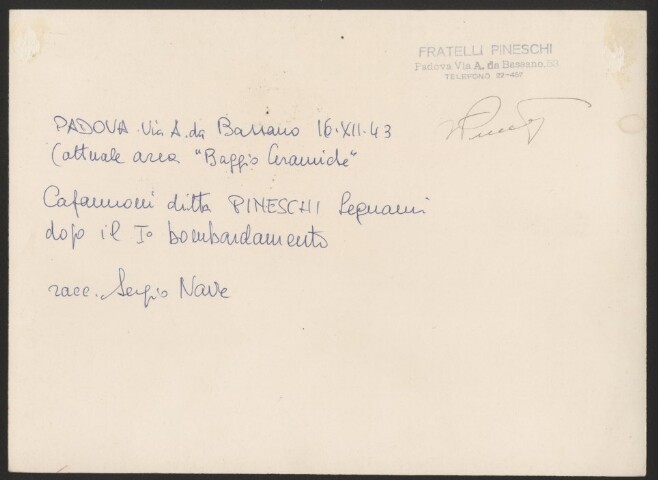 FRATELLI PINESCHI
Padova Via A. da Bassano, 58
TELEFONO 22-457
PADOVA Via A. da Bassano 16.XII.43
(attuale area "Baggio Ceramiche"
Capannoni ditta PINESCHI Legnami
dopo il Io bombardamento
racc. Sergio Nave